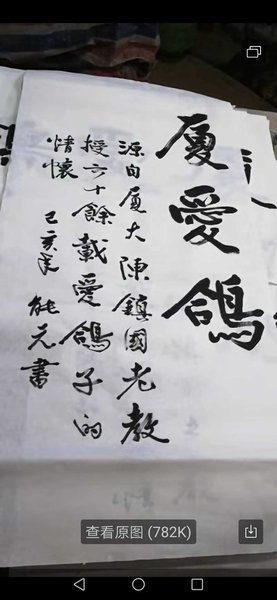 厦愛鴿
源自厦大陳鎮國老教
授六十餘載愛鴿子的
情懷
己亥年 能元書
查看原图 (782K)